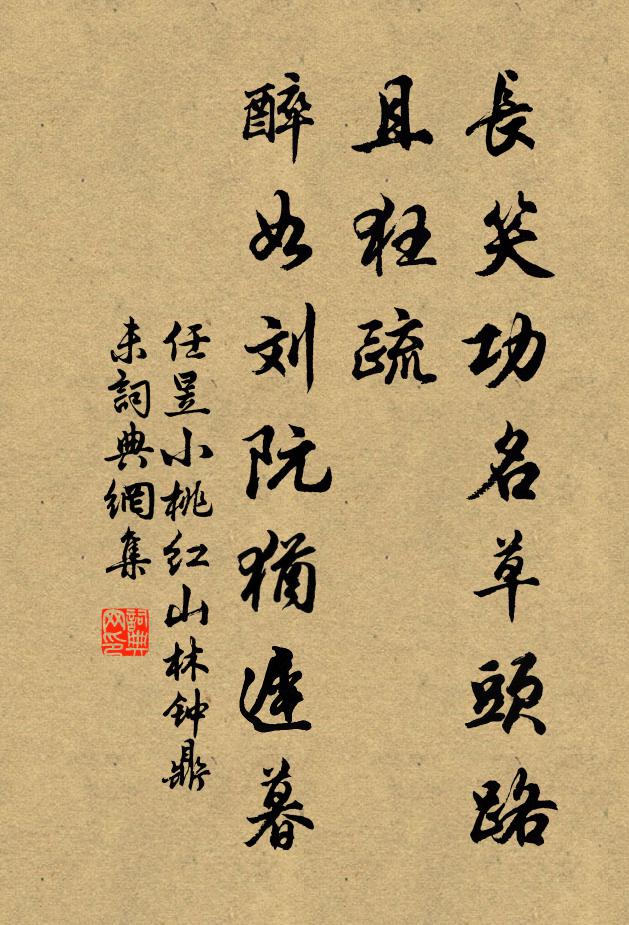 長笑功名草頭路
且狂疏
醉如刘阮猶遲暮
任昱小桃红山林钟鼎
未詞典網集
詞典网印